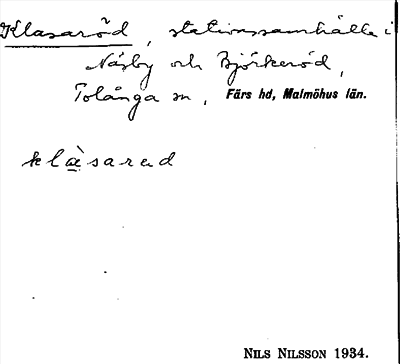 Klasaröd, stationssamhälle i
Näsby och Björkeröd,
Tolånga sn, Färs hd, Malmöhus län.
klæ̀sarad
NILS NILSSON 1934.